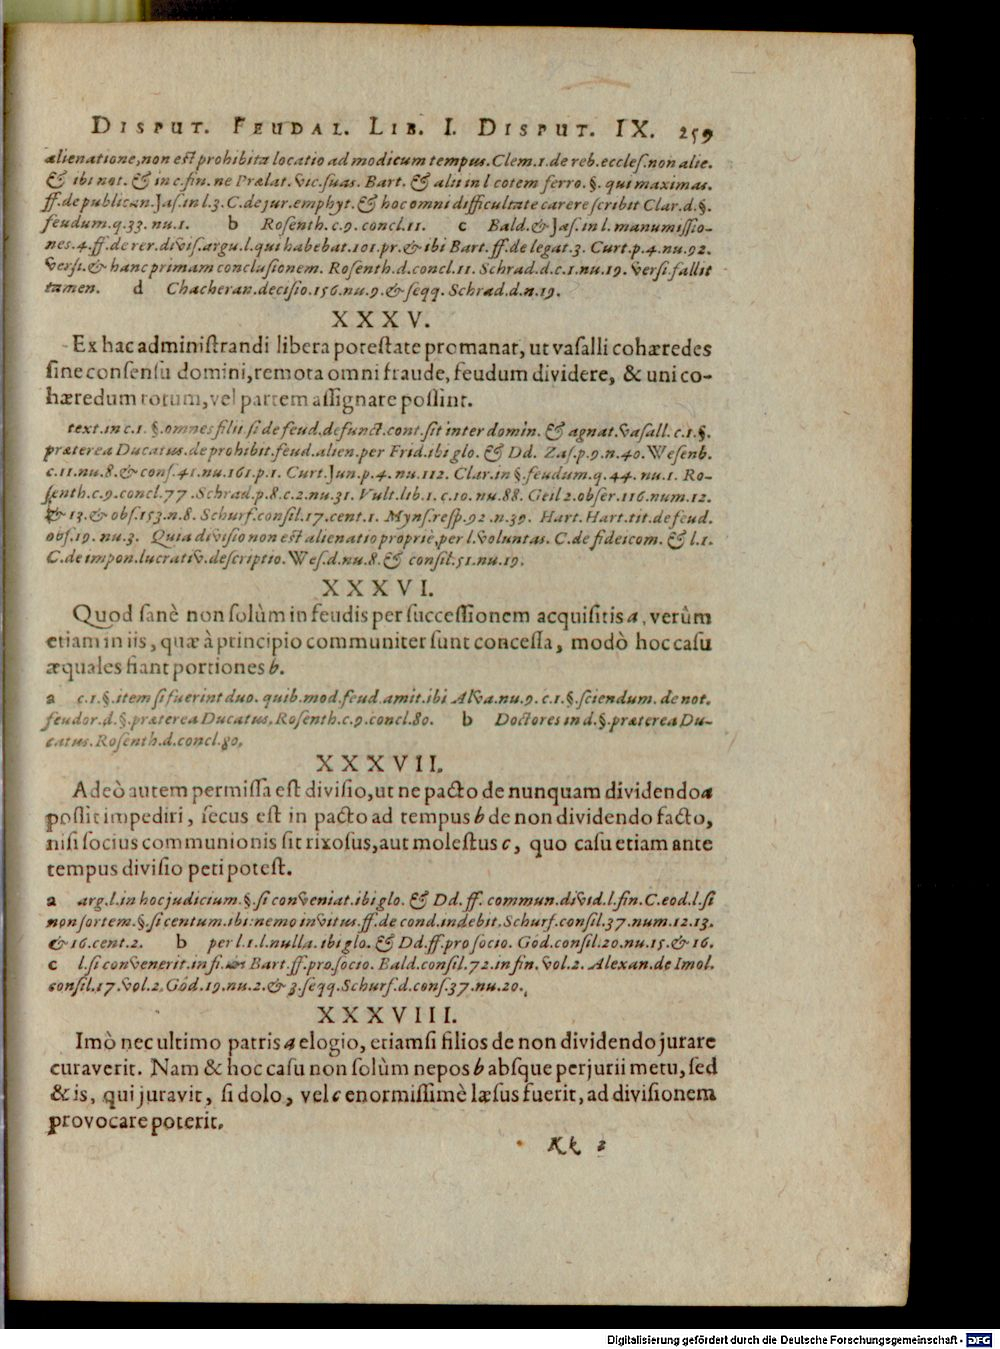 DISPUT. FEUDAL. LIB. I. DISPUT. IX. 259
alienatione, non est prohibita locatio ad modicum tempus. Clem. 1. de reb. eccles. non alie.
& ibi not. & in c. fin. ne Prælat. vic. suas. Bart. & alii in l cotem ferro. §. qui maximas.
ff. de publican. Jas. in l. 3. C. de jur. emphyt. & hoc omni difficultate carere scribit Clar. d. §.
feudum. q. 33. nu. 1. b Rosenth. c. 9. concl. 11. c Bald. & Jas. in l. manumissio-
nes. 4. ff. de rer. divis. argu. l. qui habebat. 101. pr. & ibi Bart. ff. de legat. 3. Curt. p. 4. nu. 92.
versi. & hanc primam conclusionem. Rosenth. d. concl. 11. Schrad. d. c. 1. nu. 19. versi. fallit
tamen. d Chacheran. decisio. 156. nu. 9. & seqq. Schrad. d. n. 19.
XXXV.
Ex hac administrandi libera potestate promanat, ut vasalli cohæredes
sine consensu domini, remota omni fraude, feudum dividere, & uni co-
hæredum totum, vel partem assignare possint.
text. in c. 1. §. omnes filii si de feud. defunct. cont. sit inter domin. & agnat. vasall. c. 1. §.
præterea Ducatus. de prohibit. feud. alien. per Frid. ibi glo. & Dd. Zas. p. 9. n. 40. Wesenb.
c. 11. nu. 8. & cons. 41. nu. 161. p. 1. Curt. Jun. p. 4. nu. 112. Clar. in §. feudum. q. 44. nu. 1. Ro-
senth. c. 9. concl. 77. Schrad. p. 8. c. 2. nu. 31. Vult. lib. 1. c. 10. nu. 88. Geil 2. obser. 116. num. 12.
& 13. & obs. 153. n. 8. Schurf. consil. 17. cent. 1. Myns. resp. 92. n. 39. Hart. Hart. tit. de feud.
obs. 19. nu. 3. Quia divisio non est alienatio propriè, per l. voluntas. C. de fideicom. & l. 1.
C. de impon. lucrativ. descriptio. Wes. d. nu. 8. & consil. 51. nu. 19.
XXXVI.
Quod sanè non solùm in feudis per successionem acquisitis a, verùm
etiam in iis, quæ à principio communiter sunt concessa, modò hoc casu
æquales fiant portiones b.
a c. 1. §. item si fuerint duo. quib. mod. feud. amit. ibi Alva. nu. 9. c. 1. §. sciendum. de not.
feudor. d. §. præterea Ducatus. Rosenth. c. 9. concl. 80. b Doctores in d. §. præterea Du-
catus. Rosenth. d. concl. 80.
XXXVII.
Adeò autem permissa est divisio, ut ne pacto de nunquam dividendo a
possit impediri, secus est in pacto ad tempus b de non dividendo facto,
nisi socius communionis sit rixosus, aut molestus c, quo casu etiam ante
tempus divisio peti potest.
a arg. l. in hoc judicium. §. si conveniat. ibi glo. & Dd. ff. commun. divid. l. fin. C. eod. l. si
non sortem. §. si centum. ibi: nemo invitus. ff. de cond. indebit. Schurf. consil. 37. num. 12. 13.
& 16. cent. 2. b per l. 1. l. nulla. ibi glo. & Dd. ff. pro socio. God. consil. 20. nu. 15. & 16.
c l. si convenerit. in fi. Bart. ff. pro. socio. Bald. consil. 72. in fin. vol. 2. Alexan. de Imol.
consil. 17. vol. 2. God. 19. nu. 2. & 3. seqq. Schurf. d. cons. 37. nu. 20.
XXXVIII.
Imò nec ultimo patris a elogio, etiamsi filios de non dividendo jurare
curaverit. Nam & hoc casu non solùm nepos b absque perjurii metu, sed
& is, qui juravit, si dolo, vel c enormissimè læsus fuerit, ad divisionem
provocare poterit.
Kk 2
Digitalisierung gefördert durch die Deutsche Forschungsgemeinschaft - DFG